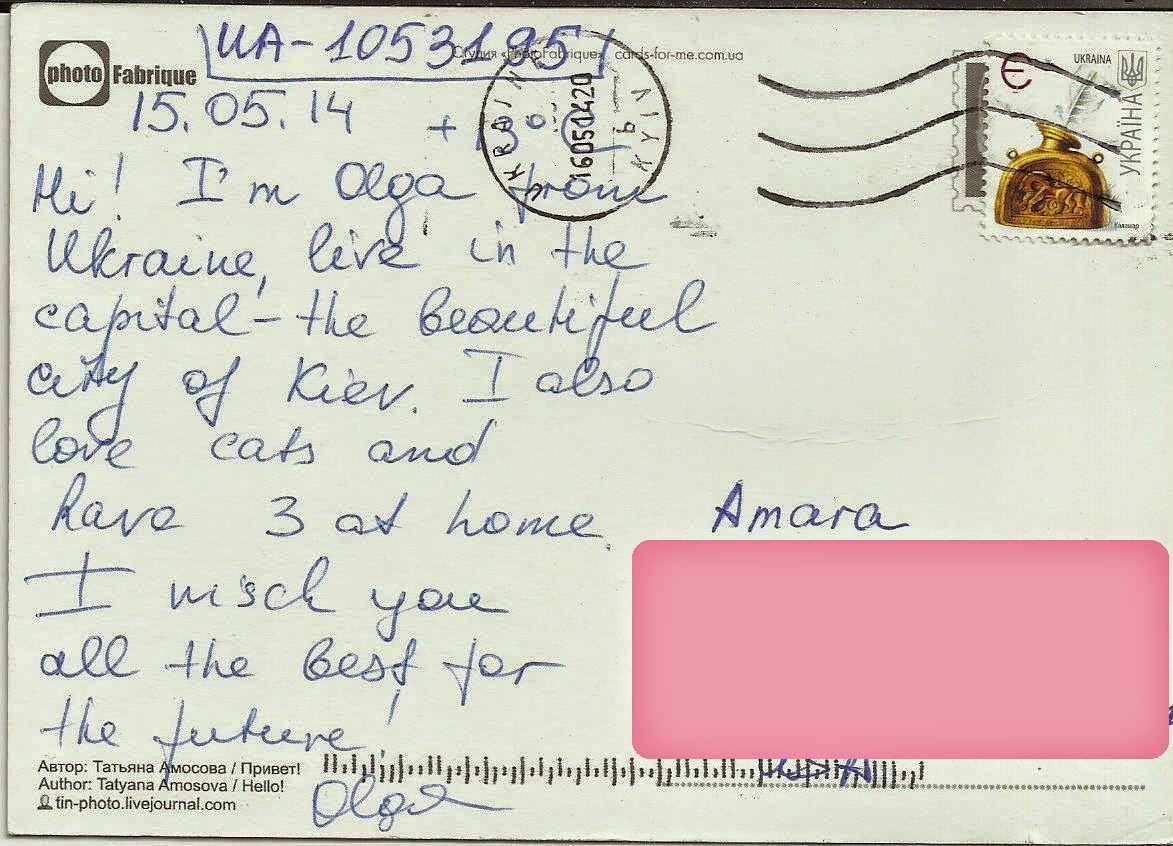 UA-1053195
Студия «PhotoFabrique» cards-for-me.com.ua
photo Fabrique
15.05.14
UKRAINA
УКРАЇНА
Каламар
KYIV
160501420
Hi! I'm Olga from
Ukraine, live in the
capital - the beautiful
city of Kiev. I also
love cats and
have 3 at home.
I wisch you
all the best for
the future!
Olga
Amara
Автор: Татьяна Амосова / Привет!
Author: Tatyana Amosova / Hello!
tin-photo.livejournal.com